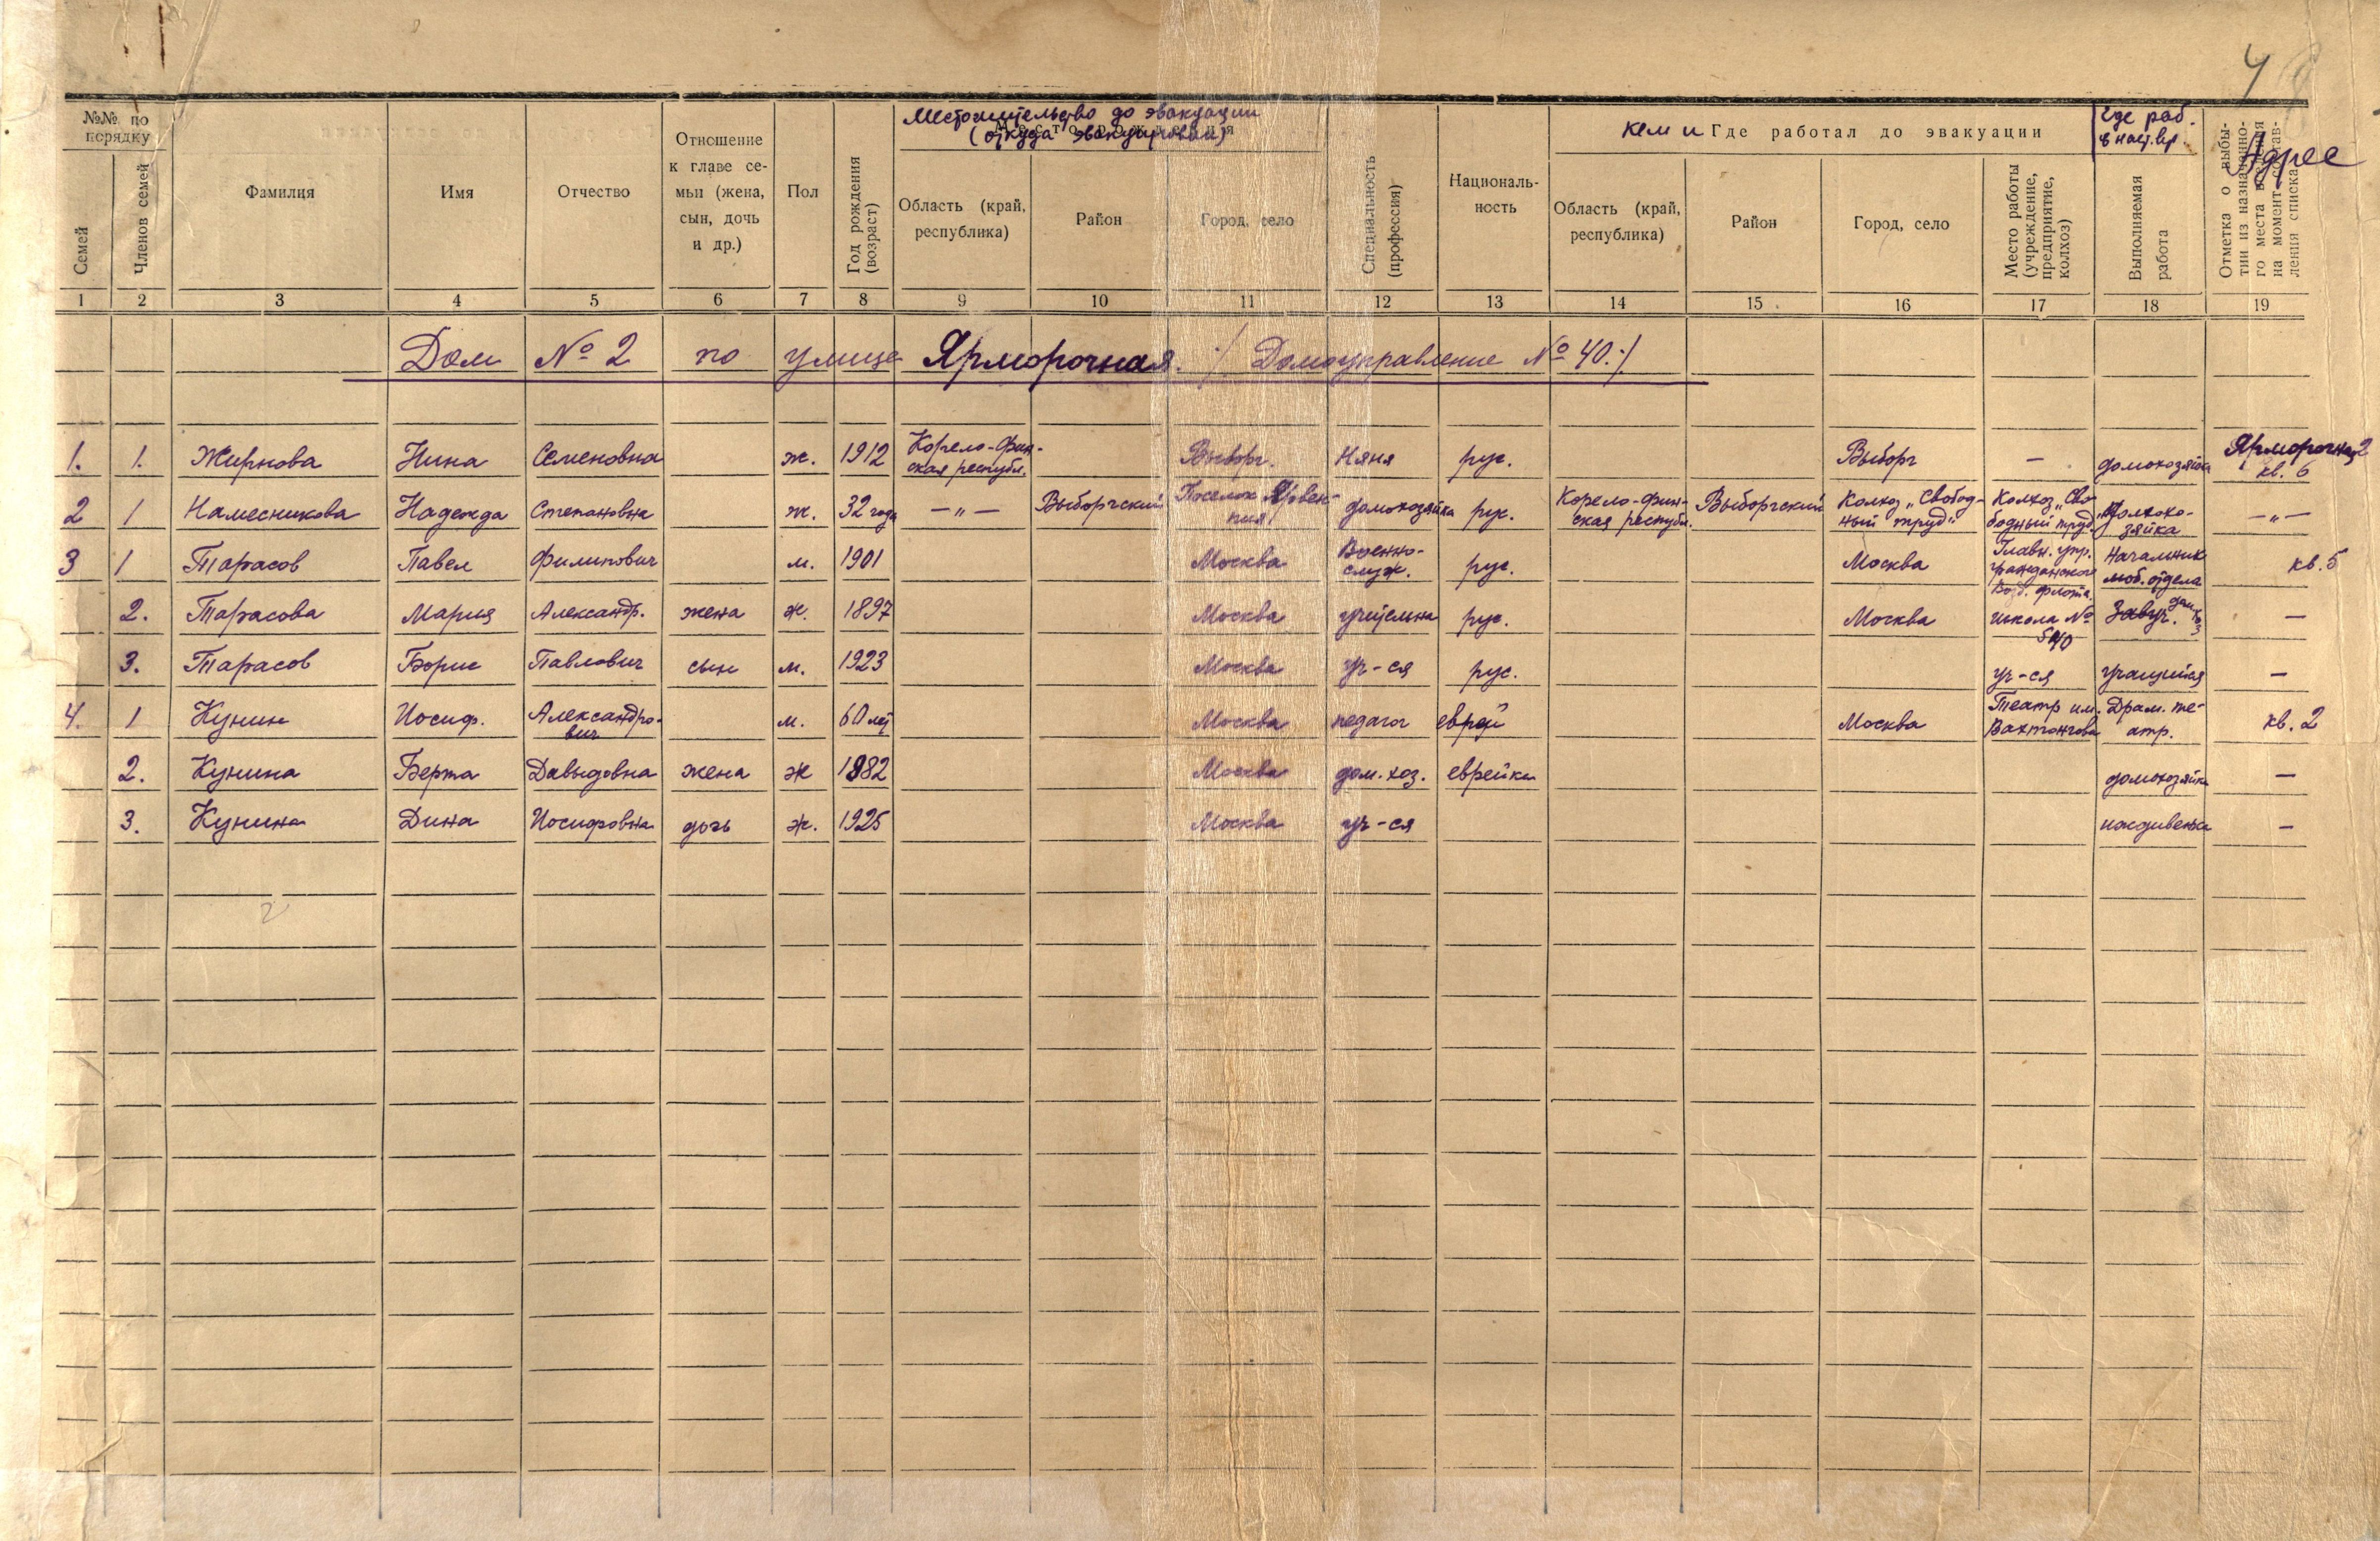 4
№№ по порядку
Семей
Членов семей
Фамилия
Имя
Отчество
Отношение к главе се-
мьи (жена, сын, дочь и др.)
Пол
Год рождения (возраст)
Местожительство до эвакуации
(откуда эвакуирован)
Место рождения
Область (край, республика)
Район
Город, село
Специальность (профессия)
Националь-
ность
кем и Где работал до эвакуации
Область (край, республика)
Район
Город, село
Место работы (учреждение, предприятие, колхоз)
Где раб.
в наст. вр.
Выполняемая работа
Адрес
Отметка о выбы-
тии из назначенно-
го места вселения
на момент состав-
ления списка
1 2 3 4 5 6 7 8 9 10 11 12 13 14 15 16 17 18 19
Дом № 2 по улице Ярморочная ./ Домоуправление № 40./
1. 1. Жирнова Нина Семеновна ж. 1912 Корело-Фин-
ская республ. Выборг. Няня рус. Выборг — домохозяйка Ярморочная 2
кв. 6
2 1 Намесникова Надежда Степановна ж. 32 года —"— Выборгский Поселок Ярвен-
пия домохозяйка рус. Корело-фин-
ская республ. Выборгский Колхоз „Свобод-
ный труд" Колхоз „Сво-
бодный труд" Домохо-
зяйка —"—
3 1 Тарасов Павел Филипович м. 1901 Москва Военно-
служ. рус. Москва Главн. упр.
гражданского
возд. флота. Начальник
моб. отдела кв. 5
2. Тарасова Мария Александр. жена ж. 1897 Москва учительна рус. Москва школа №
540 Завуч. дом. хоз —
3. Тарасов Борис Павлович сын м. 1923 Москва уч-ся рус. уч-ся учащийся —
4. 1 Кунин Иосиф. Александро-
вич м. 60 лет Москва педагог еврей Москва Театр им.
Вахтангова Драм. те-
атр. кв. 2
2. Кунина Берта Давыдовна жена ж 1882 Москва дом. хоз. еврейка домохозяйка —
3. Кунина Дина Иосифовна дочь ж. 1925 Москва уч-ся иждивенка —